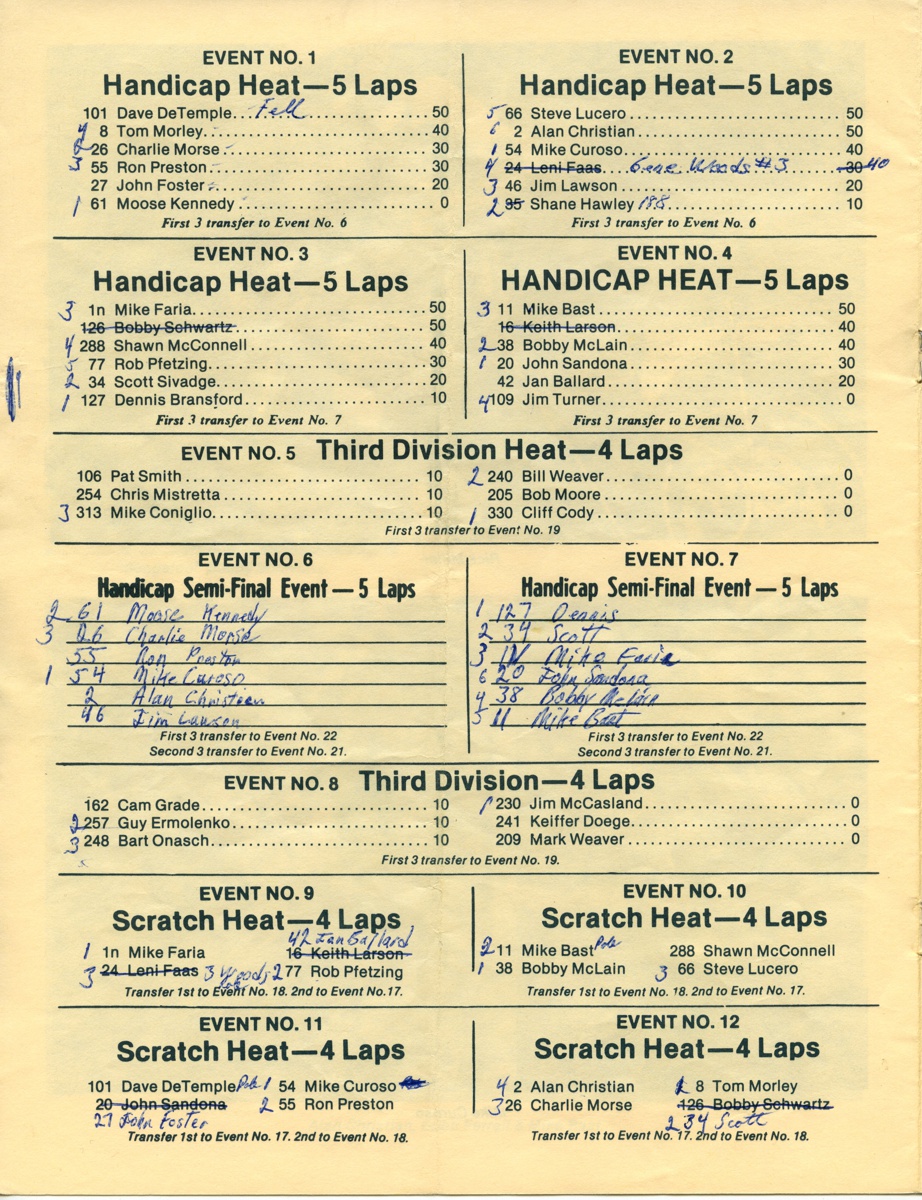 EVENT NO. 1
Handicap Heat—5 Laps
101 Dave DeTemple...Fell..................50
4 8 Tom Morley..................40
26 Charlie Morse..................30
3 55 Ron Preston..................30
27 John Foster..................20
1 61 Moose Kennedy..................0
First 3 transfer to Event No. 6
EVENT NO. 2
Handicap Heat—5 Laps
5 66 Steve Lucero..................50
2 Alan Christian..................50
1 54 Mike Curoso..................40
4 24 Leni Faas....Gene Woods #3....30 40
3 46 Jim Lawson..................20
2 85 Shane Hawley 188..................10
First 3 transfer to Event No. 6
EVENT NO. 3
Handicap Heat—5 Laps
3 1n Mike Faria..................50
126 Bobby Schwartz..................50
4 288 Shawn McConnell..................40
5 77 Rob Pfetzing..................30
2 34 Scott Sivadge..................20
1 127 Dennis Bransford..................10
First 3 transfer to Event No. 7
EVENT NO. 4
HANDICAP HEAT—5 Laps
3 11 Mike Bast..................50
16 Keith Larson..................40
2 38 Bobby McLain..................40
1 20 John Sandona..................30
42 Jan Ballard..................20
4 109 Jim Turner..................0
First 3 transfer to Event No. 7
EVENT NO. 5 Third Division Heat—4 Laps
106 Pat Smith..................10
254 Chris Mistretta..................10
3 313 Mike Coniglio..................10
2 240 Bill Weaver..................0
205 Bob Moore..................0
1 330 Cliff Cody..................0
First 3 transfer to Event No. 19
EVENT NO. 6
Handicap Semi-Final Event — 5 Laps
2 61 Moose Kennedy
3 26 Charlie Morse
55 Ron Preston
1 54 Mike Curoso
2 Alan Christian
46 Jim Lawson
First 3 transfer to Event No. 22
Second 3 transfer to Event No. 21.
EVENT NO. 7
Handicap Semi-Final Event — 5 Laps
1 127 Dennis
2 34 Scott
3 1N Mike Faria
6 20 John Sandona
4 38 Bobby McLain
5 11 Mike Bast
First 3 transfer to Event No. 22
Second 3 transfer to Event No. 21.
EVENT NO. 8 Third Division—4 Laps
162 Cam Grade..................10
2 257 Guy Ermolenko..................10
3 248 Bart Onasch..................10
1 230 Jim McCasland..................0
241 Keiffer Doege..................0
209 Mark Weaver..................0
First 3 transfer to Event No. 19.
EVENT NO. 9
Scratch Heat—4 Laps
42 Jan Ballard
1 1n Mike Faria 16 Keith Larson
3 24 Leni Faas 3 Woods 2 77 Rob Pfetzing
Transfer 1st to Event No. 18. 2nd to Event No.17.
EVENT NO. 10
Scratch Heat—4 Laps
2 11 Mike Bast Pole 288 Shawn McConnell
1 38 Bobby McLain 3 66 Steve Lucero
Transfer 1st to Event No. 18. 2nd to Event No. 17.
EVENT NO. 11
Scratch Heat—4 Laps
101 Dave DeTemple Pole 1 54 Mike Curoso
20 John Sandona 2 55 Ron Preston
27 John Foster
Transfer 1st to Event No. 17. 2nd to Event No. 18.
EVENT NO. 12
Scratch Heat—4 Laps
4 2 Alan Christian 1 8 Tom Morley
3 26 Charlie Morse 126 Bobby Schwartz
2 34 Scott
Transfer 1st to Event No. 17. 2nd to Event No. 18.